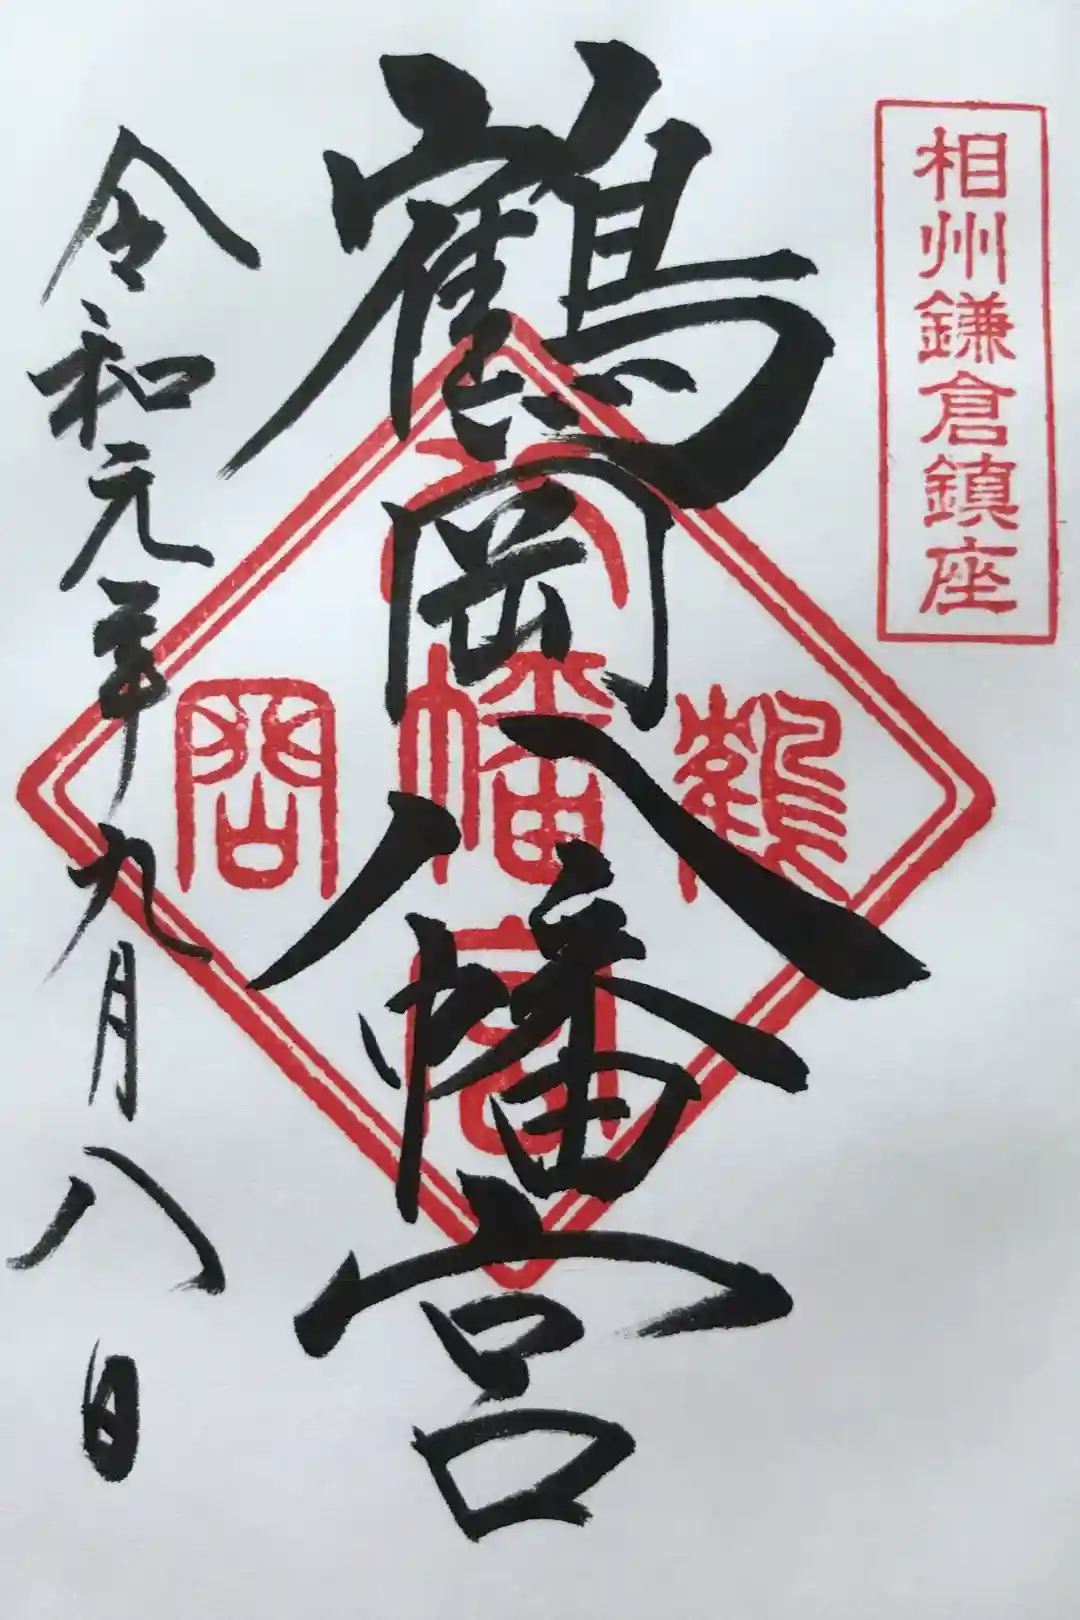 相州鎌倉鎮座
鶴岡八幡宮
八
鶴幡岡
宮
令和元年九月八日